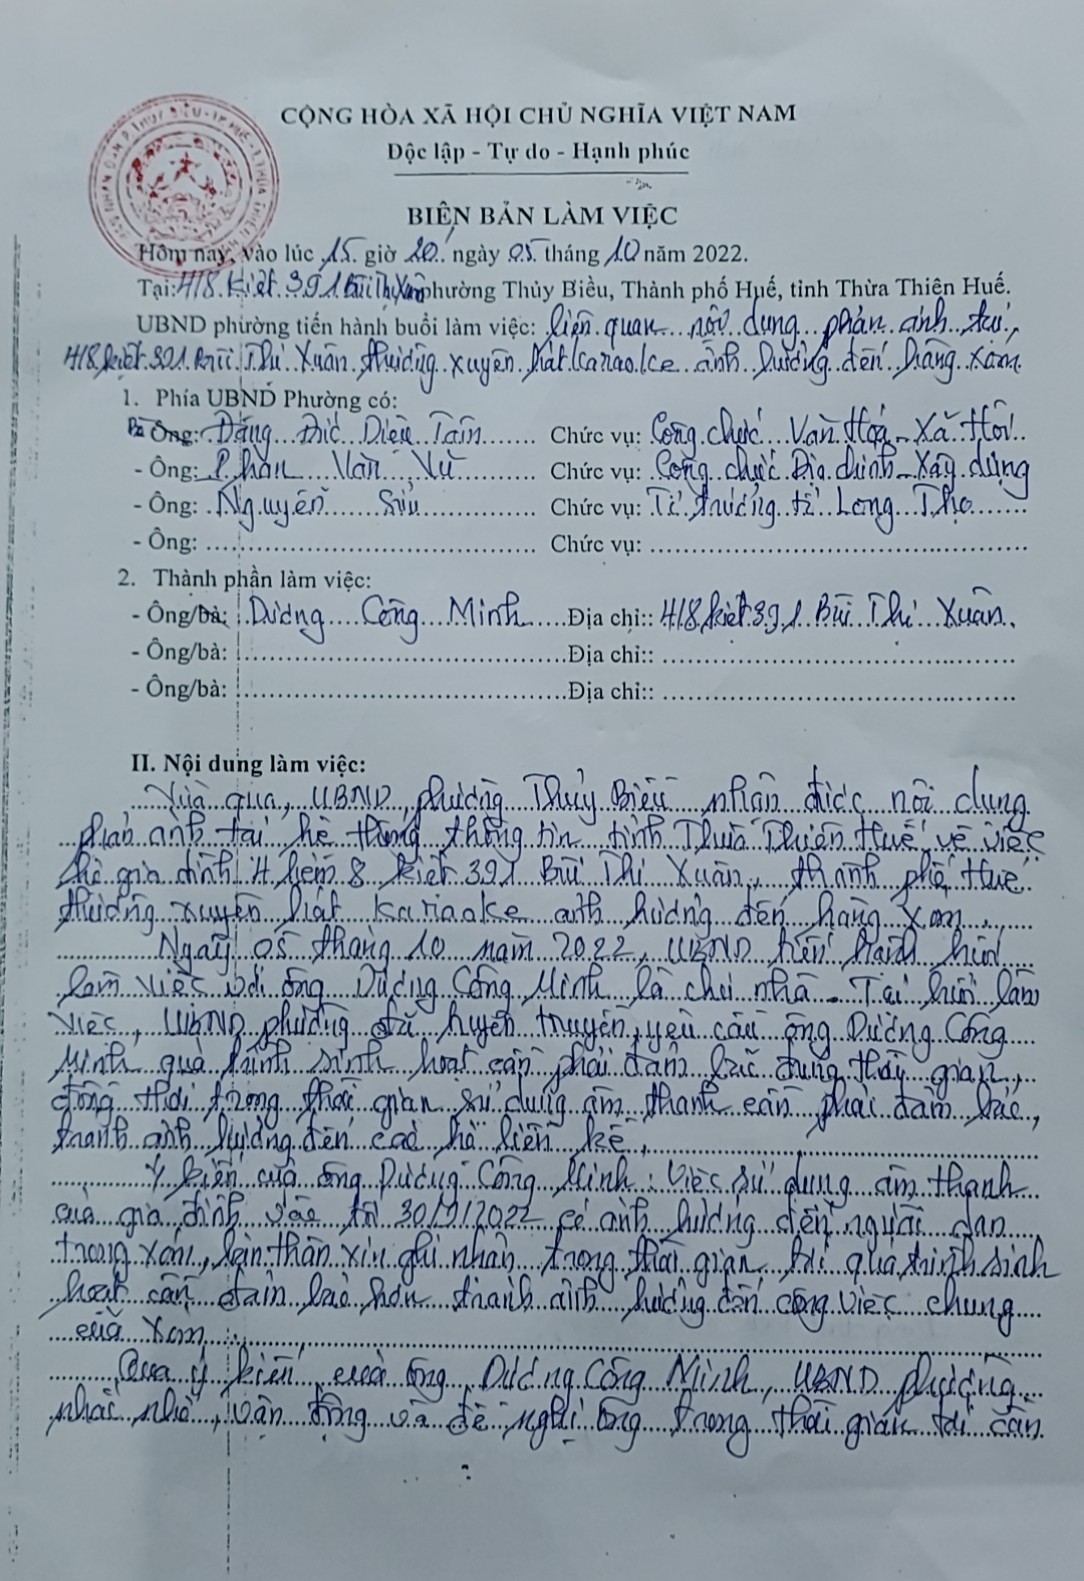 CỘNG HÒA XÃ HỘI CHỦ NGHĨA VIỆT NAM
Độc lập - Tự do - Hạnh phúc
BIÊN BẢN LÀM VIỆC
Hôm nay, vào lúc 15 giờ 20, ngày 05 tháng 10 năm 2022.
Tại: 4/8 kiệt 391 Bùi Thị Xuân phường Thủy Biều, Thành phố Huế, tỉnh Thừa Thiên Huế.
UBND phường tiến hành buổi làm việc: liên quan nội dung phản ánh tại
4/8 kiệt 391 Bùi Thị Xuân thường xuyên hát karaoke ảnh hưởng đến hàng xóm.
1. Phía UBND Phường có:
Bà Ông: Đặng Diệu Tâm Chức vụ: Công chức Văn Hoá - Xã Hội
- Ông: Phan Văn Chức vụ: Công chức Địa chính - Xây dựng
- Ông: Nguyễn Sửu Chức vụ: Tổ trưởng tổ Long Thọ
- Ông: Chức vụ:
2. Thành phần làm việc:
- Ông/bà: Dương Công Minh Địa chỉ:: 4/8 kiệt 391 Bùi Thị Xuân.
- Ông/bà: Địa chỉ::
- Ông/bà: Địa chỉ::
II. Nội dung làm việc:
Vừa qua, UBND phường Thủy Biều nhận được nội dung
phản ánh tại hệ thống thông tin tỉnh Thừa Thiên Huế, về việc
hộ gia đình 4 hẻm 8 kiệt 391 Bùi Thị Xuân, thành phố Huế
thường xuyên hát Kariaoke ảnh hưởng đến hàng xóm.
Ngày 05 tháng 10 năm 2022, UBND tiến hành buổi
làm việc với ông Dương Công Minh là chủ nhà. Tại buổi làm
việc, UBND phường đã tuyên truyền, yêu cầu ông Dương Công
Minh quá trình sinh hoạt cần phải đảm bảo đúng thời gian,
đồng thời trong thời gian sử dụng âm thanh cần phải đảm bảo,
tránh ảnh hưởng đến các hộ liền kề,
Ý kiến của ông Dương Công Minh: Việc sử dụng âm thanh
của gia đình vào tối 30/9/2022 có ảnh hưởng đến người dân
trong xóm, bản thân xin ghi nhận, trong thời gian tới quá trình sinh
hoạt cần đảm bảo hơn tránh ảnh hưởng đến công việc chung
của xóm.
Qua ý kiến của ông Dương Công Minh, UBND phường
nhắc nhở, vận động và đề nghị ông trong thời gian tới cần